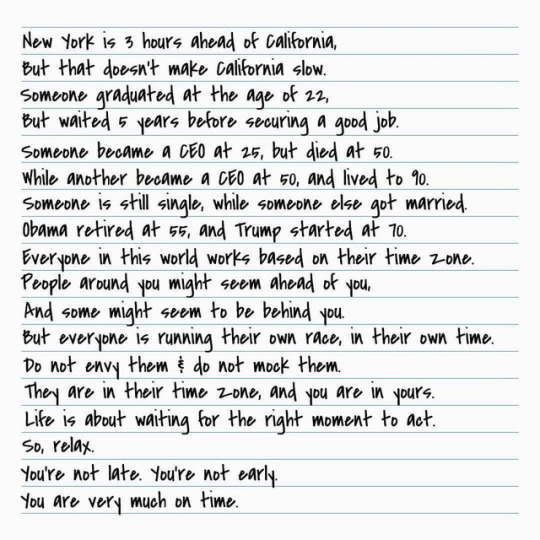 New York is 3 hours ahead of California,
But that doesn't make California slow.
Someone graduated at the age of 22,
But waited 5 years before securing a good job.
Someone became a CEO at 25, but died at 50.
While another became a CEO at 50, and lived to 90.
Someone is still single, while someone else got married.
Obama retired at 55, and Trump started at 70.
Everyone in this world works based on their time zone.
People around you might seem ahead of you,
And some might seem to be behind you.
But everyone is running their own race, in their own time.
Do not envy them & do not mock them.
They are in their time zone, and you are in yours.
Life is about waiting for the right moment to act.
So, relax.
You're not late. You're not early.
You are very much on time.